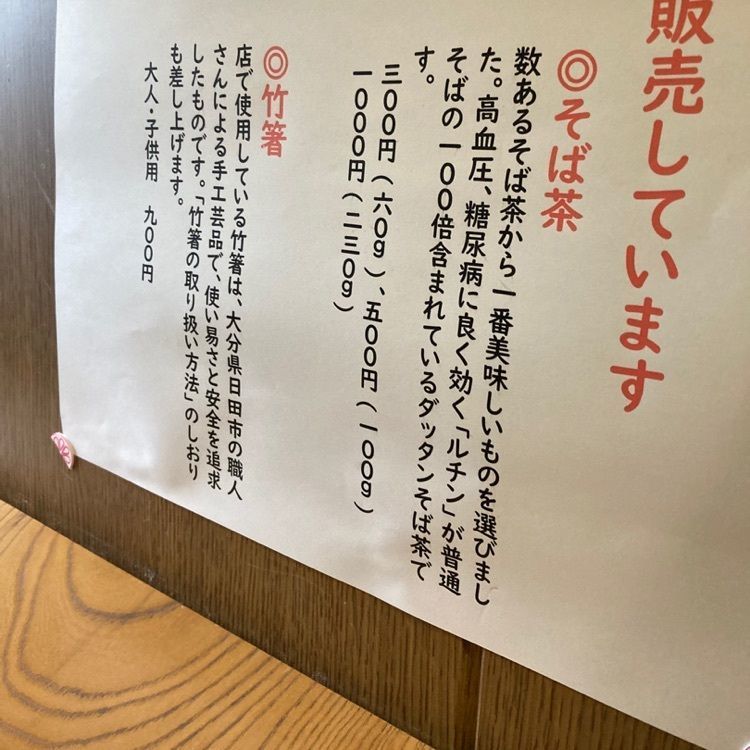 販売しています
◎そば茶
数あるそば茶から一番美味しいものを選びまし
た。高血圧、糖尿病に良く効く「ルチン」が普通
そばの一〇〇倍含まれているダッタンそば茶で
す。
三〇〇円(六〇g)、五〇〇円(一〇〇g)
一〇〇〇円(二三〇g)
◎竹箸
店で使用している竹箸は、大分県日田市の職人
さんによる手工芸品で、使い易さと安全を追求
したものです。「竹箸の取り扱い方法」のしおり
も差し上げます。
大人・子供用 九〇〇円